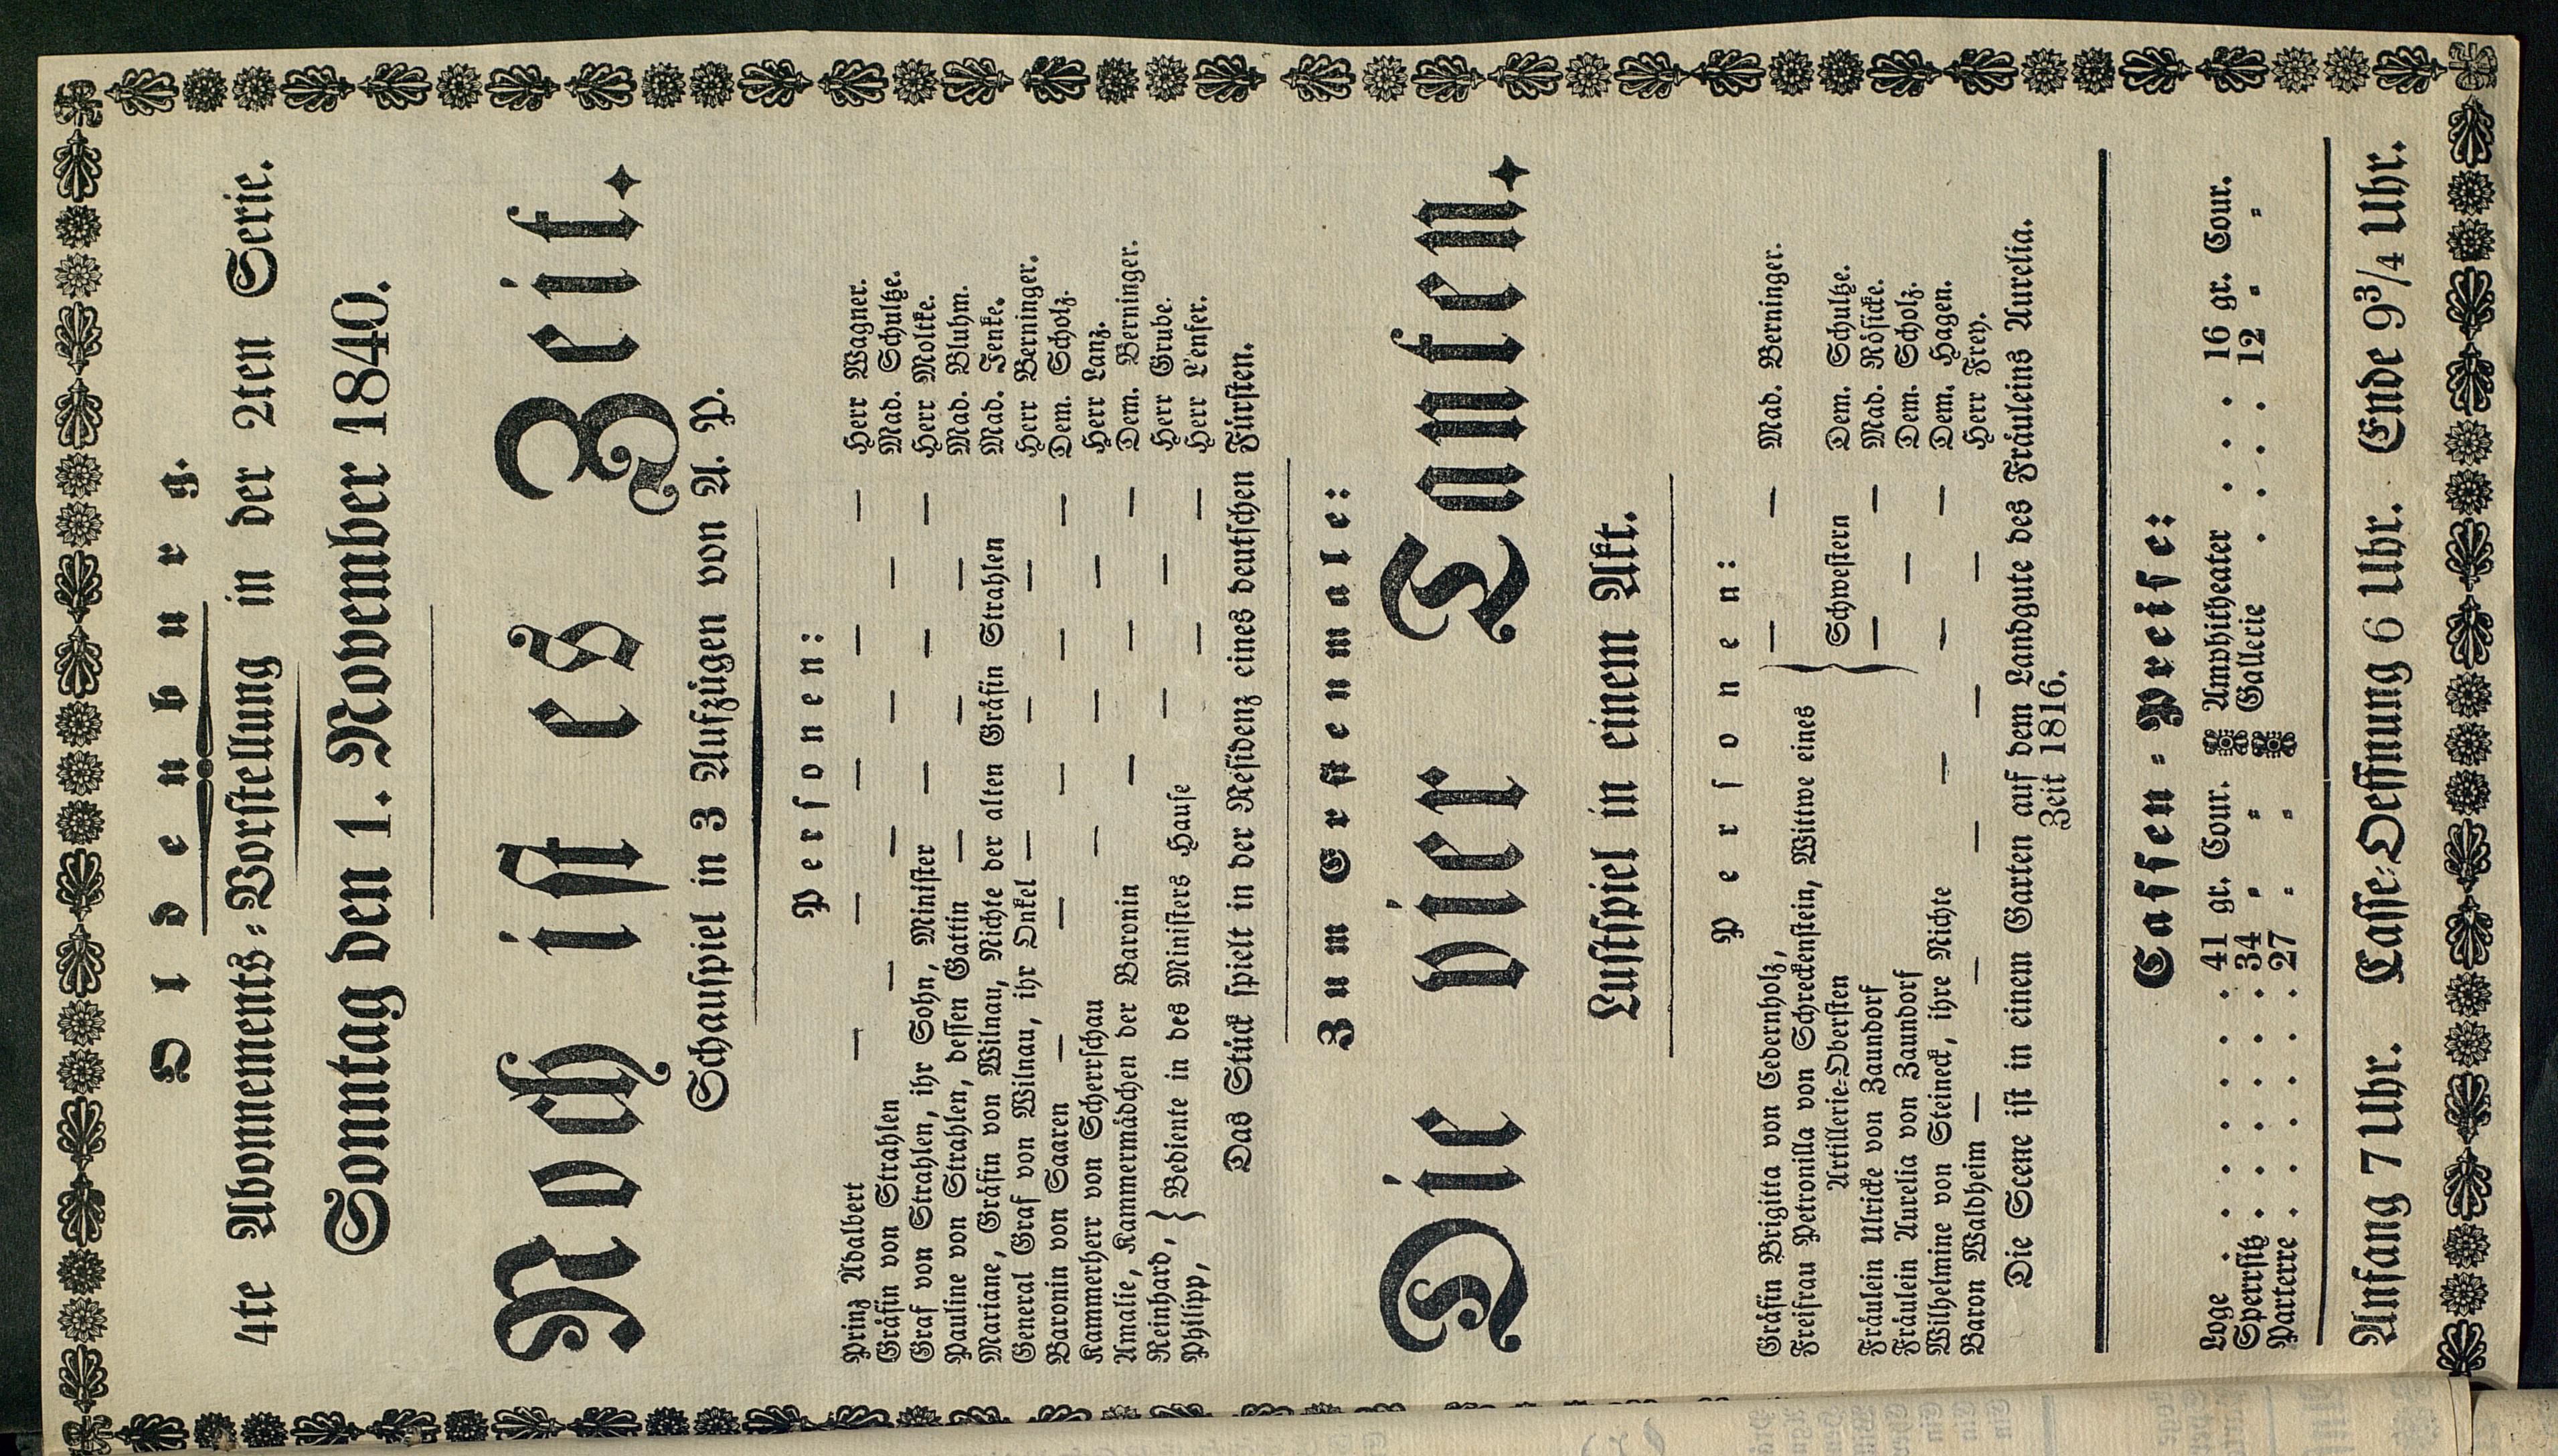 Oldenburg.
4te Abonnements-Vorstellung in der 2ten Serie.
Sonntag den 1. November 1840.
Noch ist es Zeit.
Schauspiel in 3 Aufzügen von A. P.
Personen:
Prinz Adalbert — — — — — Herr Wagner.
Gräfin von Strahlen — — — — Mad. Schultze.
Graf von Strahlen, ihr Sohn, Minister — — — Herr Moltke.
Pauline von Strahlen, dessen Gattin — — — Mad. Bluhm.
Mariane, Gräfin von Wilnau, Nichte der alten Gräfin Strahlen Mad. Jenke.
General Graf von Wilnau, ihr Onkel — — — Herr Berninger.
Baronin von Saaren — — — — — Dem. Scholz.
Kammerherr von Scherrschau — — — Herr Lanz.
Amalie, Kammermädchen der Baronin — — — Dem. Berninger.
Reinhard, } Bediente in des Ministers Hause — — Herr Grube.
Philipp, — — Herr L'enser.
Das Stück spielt in der Residenz eines deutschen Fürsten.
Zum Erstenmale:
Die vier Tanten.
Lustspiel in einem Akt.
Personen:
Gräfin Brigitta von Cedernholz, — — Mad. Berninger.
Freifrau Petronilla von Schreckenstein, Wittwe eines
Artillerie-Obersten } Schwestern Dem. Schultze.
Fräulein Ulricke von Zaundorf — — Mad. Rösicke.
Fräulein Aurelia von Zaundorf — Dem. Scholz.
Wilhelmine von Steineck, ihre Nichte — — — Dem. Hagen.
Baron Waldheim — — — — — Herr Frey.
Die Scene ist in einem Garten auf dem Landgute des Fräuleins Aurelia.
Zeit 1816.
Cassen-Preise:
Loge . . . . . . . 41 gr. Cour. Amphitheater . . . 16 gr. Cour.
Sperrsitz . . . . . . . 34 - - Gallerie . . . . 12 - -
Parterre . . . . . . . 27 - -
Anfang 7 Uhr. Casse-Oeffnung 6 Uhr. Ende 9 3/4 Uhr.